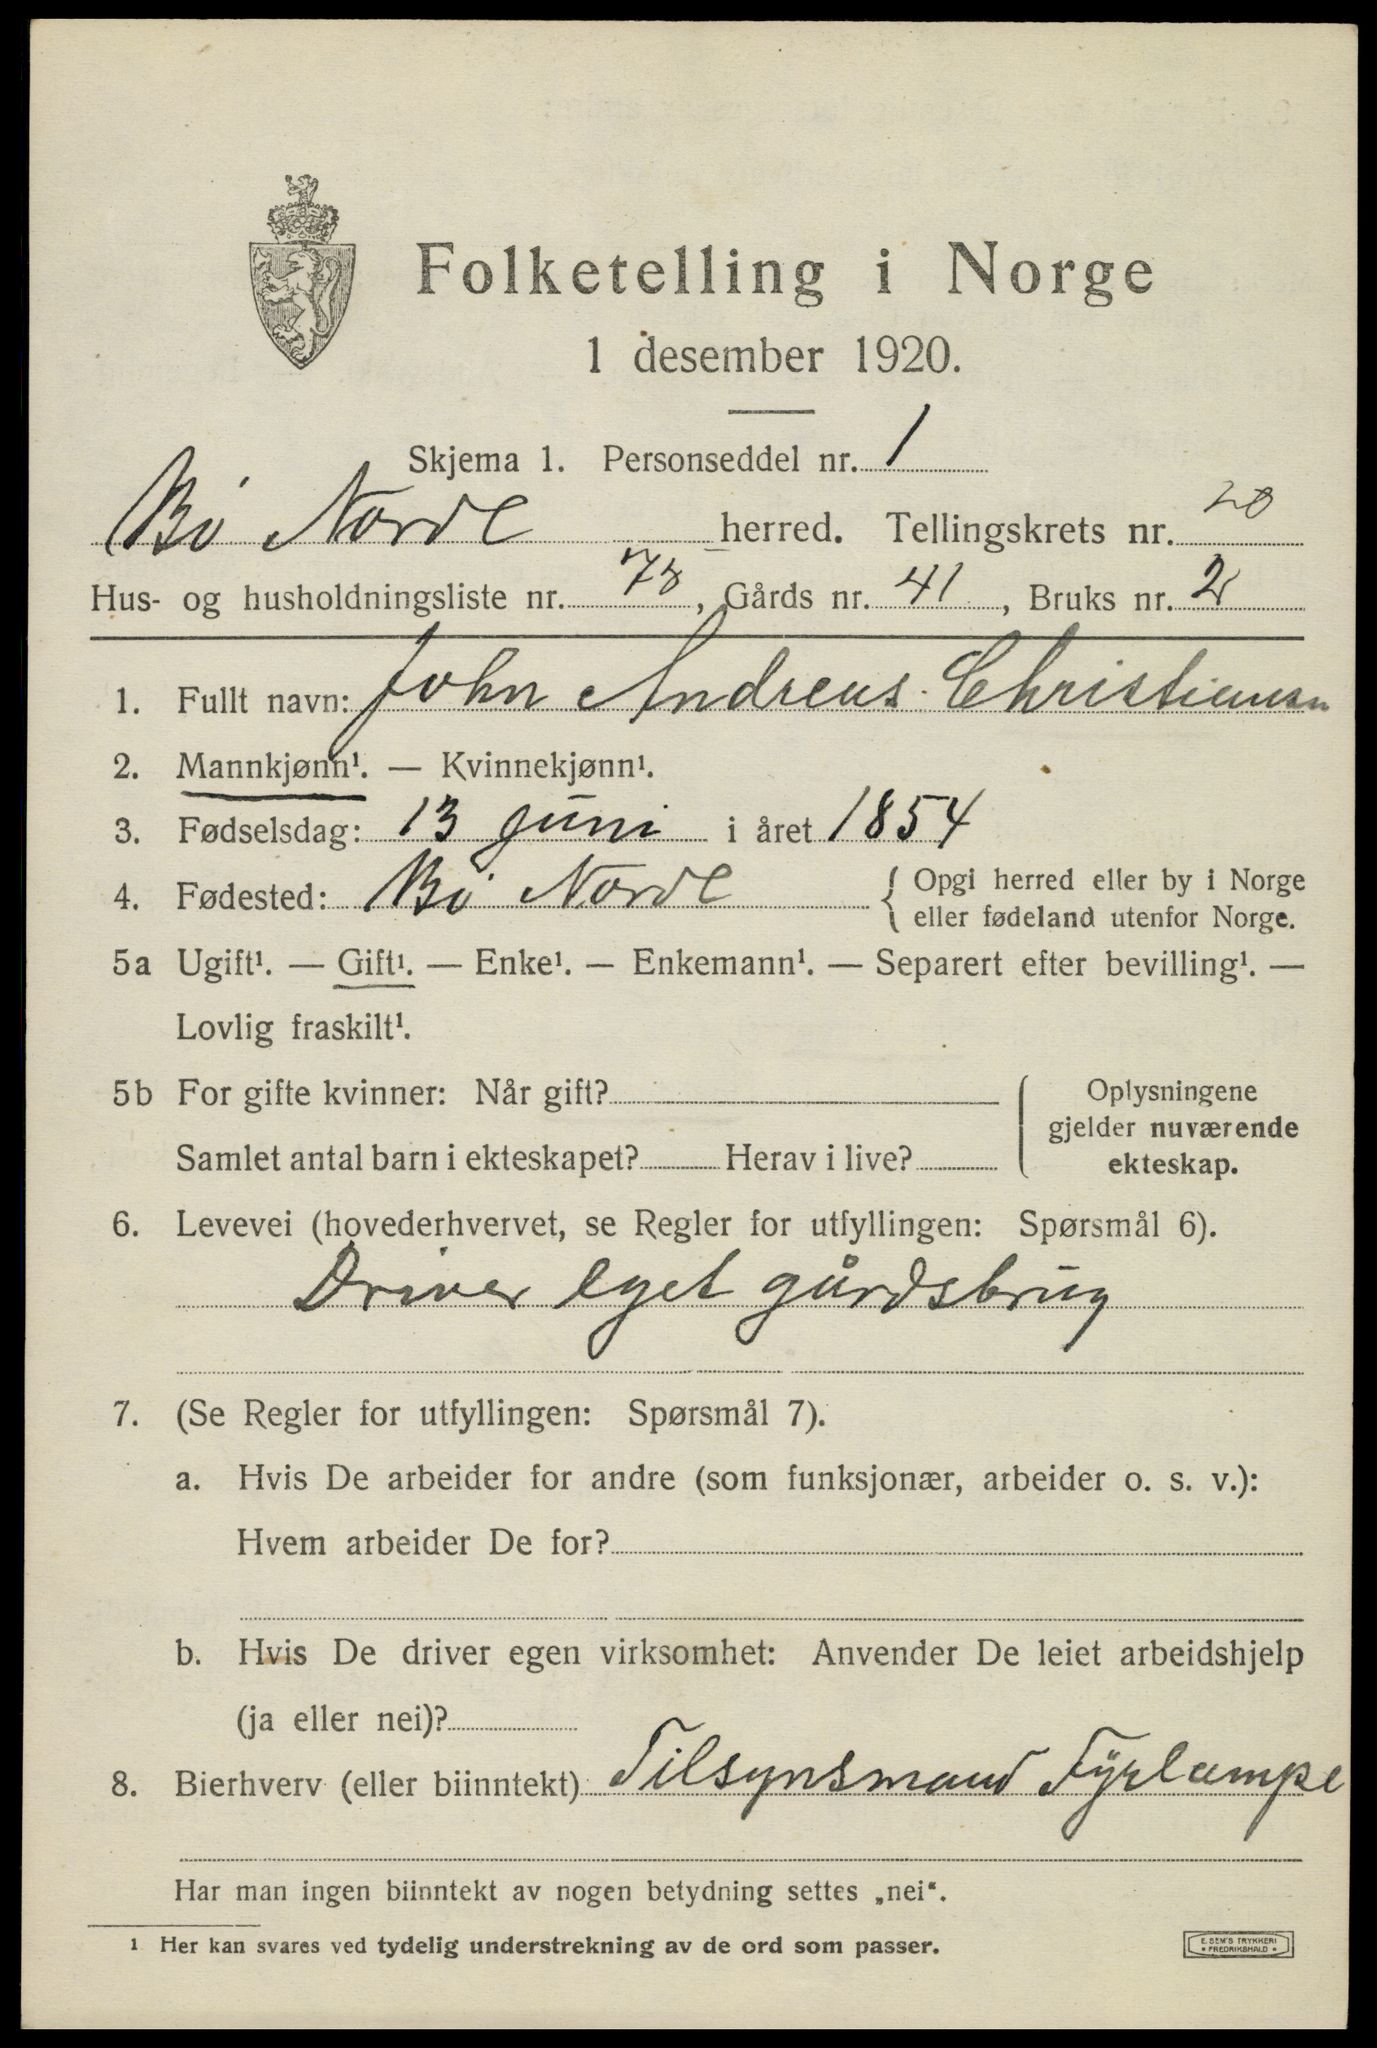 Folketelling i Norge
1 desember 1920.
Skjema 1. Personseddel nr. 1
Bø Nordl herred. Tellingskrets nr. 20
Hus- og husholdningsliste nr. 78, Gårds nr. 41, Bruks nr. 2
1. Fullt navn: John Andreas Christiansn
2. Mannkjønn¹. — Kvinnekjønn¹.
3. Fødselsdag: 13 juni i året 1854
4. Fødested: Bø Nordl { Opgi herred eller by i Norge
eller fødeland utenfor Norge.
5a Ugift¹. — Gift¹. — Enke¹. — Enkemann¹. — Separert efter bevilling¹. —
Lovlig fraskilt¹.
5b For gifte kvinner: Når gift?
Samlet antal barn i ekteskapet? Herav i live?
Oplysningene
gjelder nuværende
ekteskap.
6. Levevei (hovederhvervet, se Regler for utfyllingen: Spørsmål 6).
Driver eget gårdsbrug
7. (Se Regler for utfyllingen: Spørsmål 7).
a. Hvis De arbeider for andre (som funksjonær, arbeider o. s. v.):
Hvem arbeider De for?
b. Hvis De driver egen virksomhet: Anvender De leiet arbeidshjelp
(ja eller nei)?
8. Bierhverv (eller biinntekt) Tilsynsmand Fyrlampe
Har man ingen biinntekt av nogen betydning settes „nei“.
¹ Her kan svares ved tydelig understrekning av de ord som passer.
E. SEM'S TRYKKERI
FREDRIKSHALD